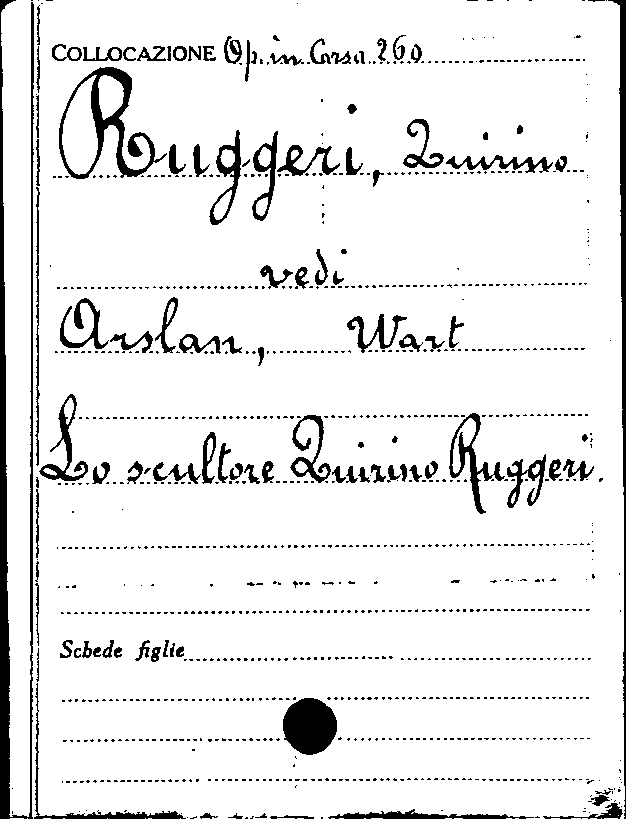 COLLOCAZIONE Op. in Corso 260
Ruggeri, Quirino
vedi
Arslan, Wart
Lo scultore Quirino Ruggeri.
Schede figlie